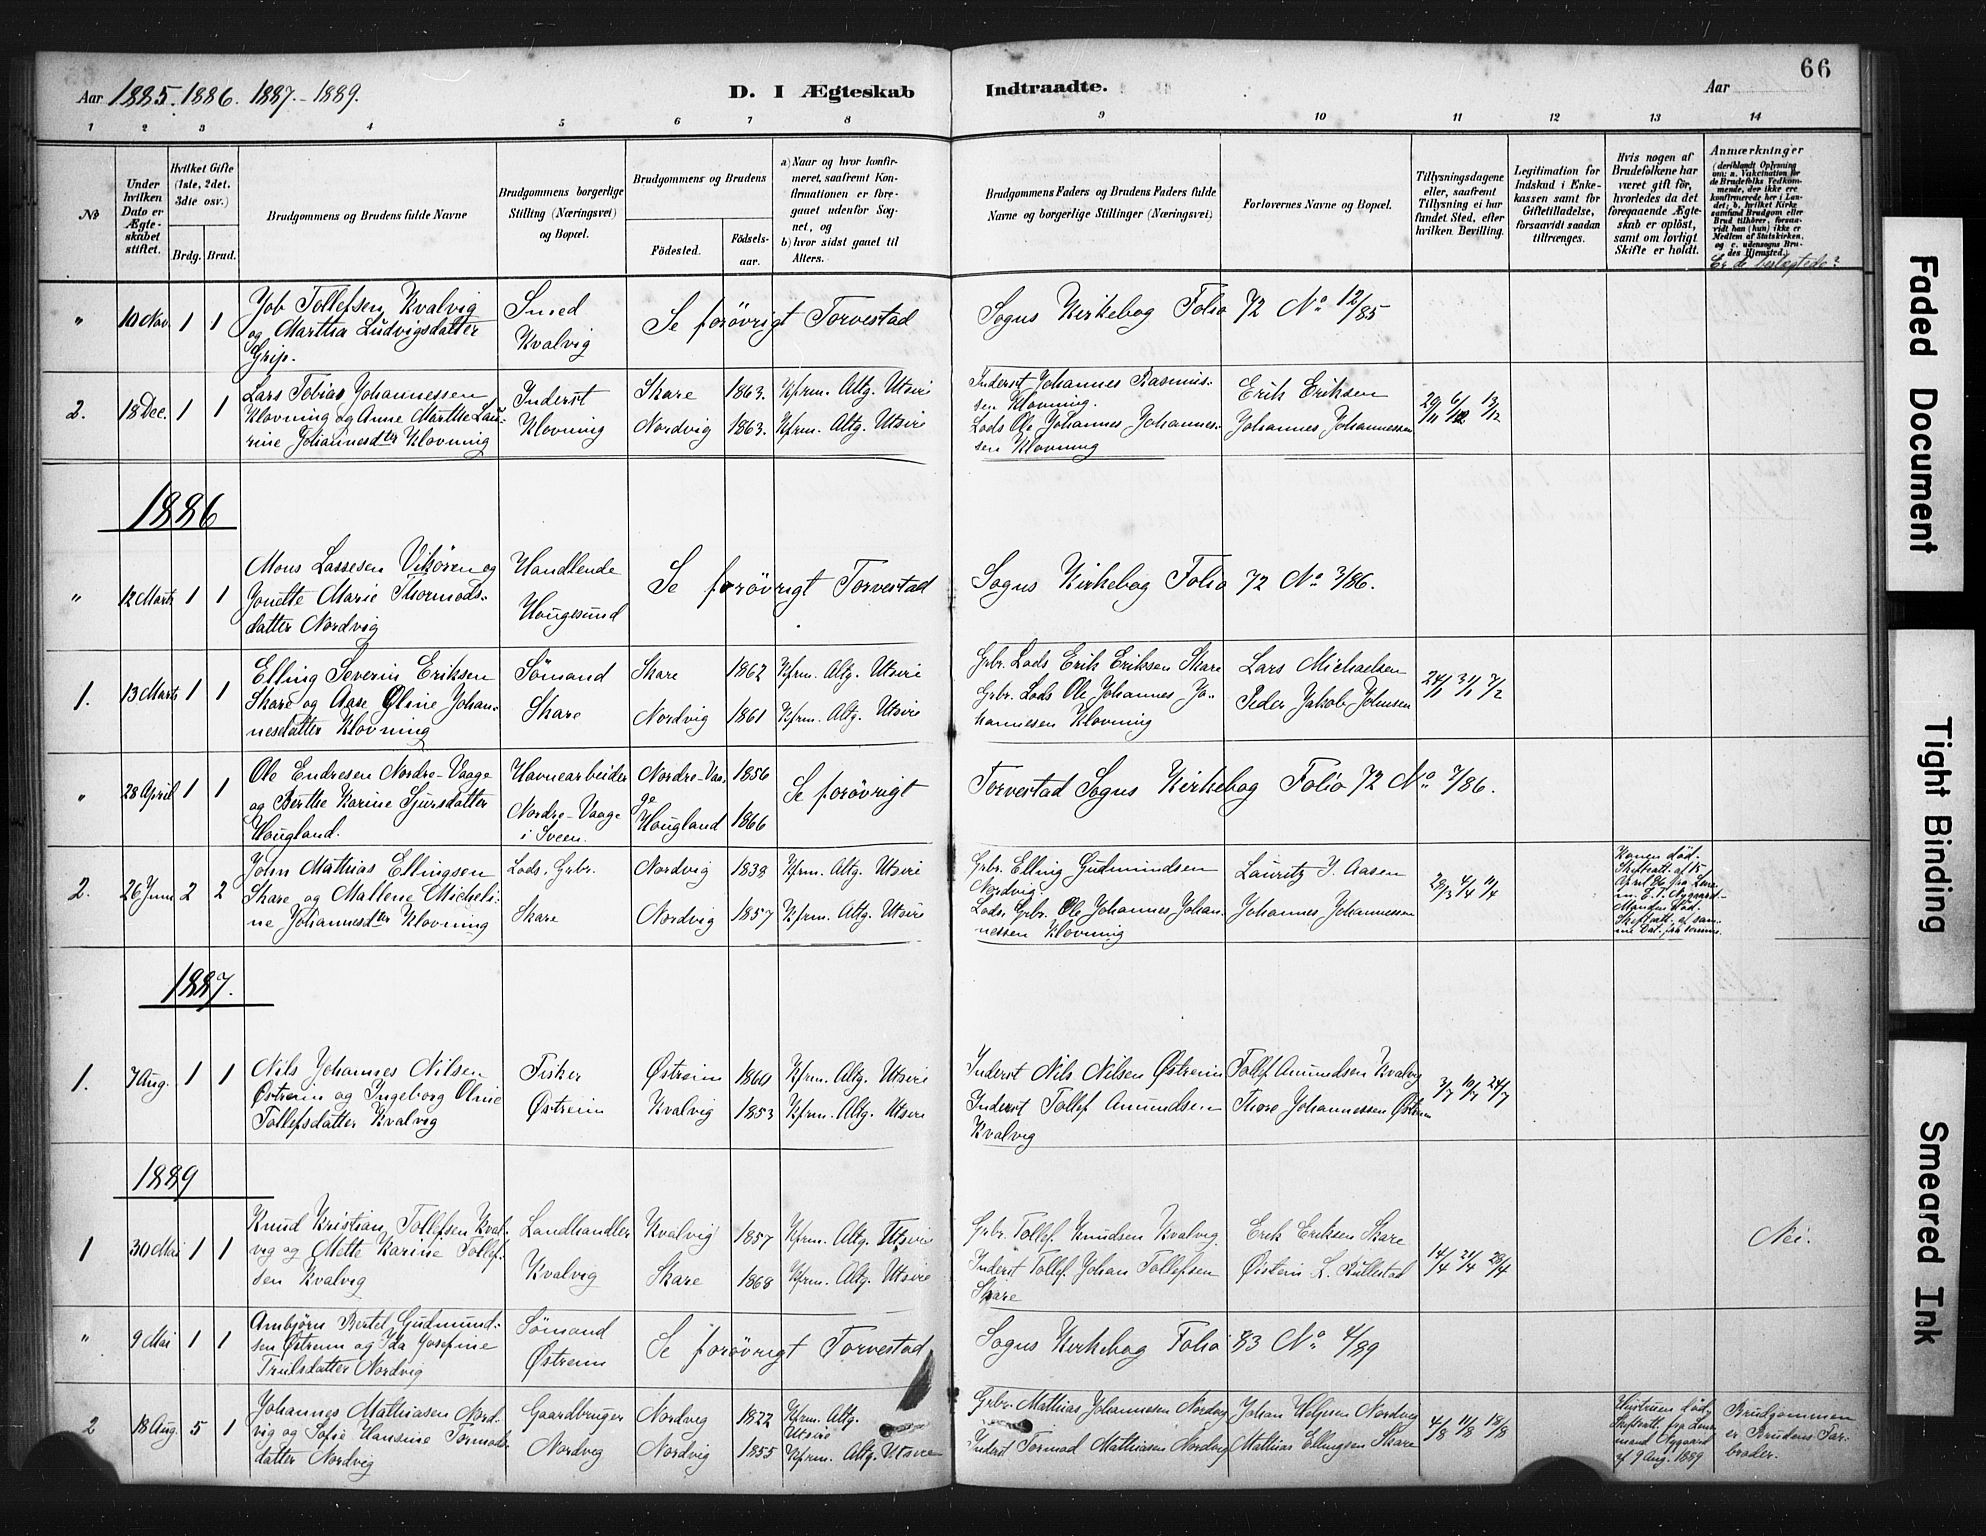 66
Aar 1885. 1886. 1887.-1889.
D. I Ægteskab Indtraadte.
Aar
1 2 3 4 5 6 7 8 9 10 11 12 13 14
No
Under hvilken Dato er Ægte-skabet stiftet.
Hvilket Gifte (1ste, 2det, 3die osv.)
Brdg. Brud.
Brudgommens og Brudens fulde Navne
Brudgommens borgerlige Stilling (Næringsvei) og Bopæl.
Brudgommens og Brudens
Fødested.
Fødsels-aar.
a) Naar og hvor konfir-meret, saafremt Kon-firmationen er fore-gaaet udenfor Sog-net, og
b) hvor sidst gaaet til Alters.
Brudgommens Faders og Brudens Faders fulde Navne og borgerlige Stillinger (Næringsvei)
Forlovernes Navne og Bopæl.
Tillysningsdagene eller, saafremt Tillysning ei har fundet Sted, efter hvilken Bevilling.
Legitimation for Indskud i Enke-kassen samt for Giftetilladelse, forsaavidt saadan tiltrænges.
Hvis nogen af Brudefolkene har været gift før, hvorledes da det foregaaende Ægte-skab er opløst, samt om lovligt Skifte er holdt.
Anmærkninger
(deriblandt Oplysning om: a. Vakcination for de Brudefolks Vedkom-mende, der ikke ere konfirmerede her i Lan-det; b. hvilket Kirke samfund Brudgom eller Brud tilhører, forsaa-vidt han (hun) ikke er Medlem af Statskirken. og c. udensogns Bru-des Hjemsted.)
Er de beslægtede?
" 10 Nov. 1 1
Job Tollefsen Kvalvig
og Martha Ludvigsdatter
Grip.
Smed
Kvalvig
Se forøvrigt Torvestad Sogns Kirkebog Folio 72 No 12/85
2. 18 Dec. 1 1
Lars Tobias Johannessen
Klovning og Anne Marthe Lau-
rine Johannesdter Klovning
Inderst
Klovning
Skare 1863. Kfrm. Altg. Utsire
Nordvig 1863. Kfrm. Altg. Utsire
Inderst Johannes Rasmus-
sen Klovning.
Lods Ole Johannes Johannes-
sen Klovning
Erik Eriksen
Johannes Johannessen
29/11 6/12 13/12
1886
" 12 Marts 1 1
Mons Lassesen Vikören og
Jonette Marie Thormods-
datter Nordvig
Handlende
Haugesund
Se forøvrigt Torvestad Sogns Kirkebog Folio 72 No 3/86.
1. 13 Marts 1 1
Elling Severin Eriksen
Skare og Aase Oline Johan-
nesdatter Klovning
Sömand
Skare
Skare 1862 Kfrm. Altg. Utsire
Nordvig 1861 Kfrm. Altg. Utsire
Grbr. Lods Erik Eriksen Skare
Grbr. Lods Ole Johannes Jo-
hannesen Klovning
Lars Michaelsen
Peder Jakob Johnsen
24/1 31/1 7/2
" 28 April 1 1
Ole Endresen Nordre-Vaage
og Berthe Karine Sjursdatter
Hougland.
Havnearbeider
Nordre-Vaage
i Sveen.
Nordre-Vaa-
ge 1856
Hougland 1866
Se forøvrigt Torvestad Sogns Kirkebog Folio 72 No 7/86.
2. 26 Juni 2 2
John Mathias Ellingsen
Skare og Mallene Micheli-
ne Johannesdter Klovning
Lods. Grbr.
Skare
Nordvig 1838 Kfrm. Altg. Utsire
Nordvig 1857 Kfrm. Altg. Utsire
Grbr. Elling Gudmundsen
Nordvig.
Lods. Grbr. Ole Johannes Johan-
nessen Klovning
Lauritz J. Aasen
Johannes Johannessen
28/3 4/4 11/4
Konen död.
Skifteatt. af 15
April 86 fra Lens-
m. E. T. Nygaard.-
Manden död.
Skifteatt. af sam-
me Dat. fra samme.
1887.
1. 7 Aug. 1 1
Nils Johannes Nilsen
Østreim og Ingeborg Oline
Tollefsdatter Kvalvig
Fisker
Østreim
Østreim 1860 Kfrm. Altg. Utsire
Kvalvig 1853 Kfrm. Altg. Utsire
Inderst Nils Nilsen Østreim
Inderst Tollef Amundsen
Kvalvig
Tollef Amundsen Kvalvig
Thore Johannessen Østreim
3/7 10/7 24/7
1889
1 30 Mai 1 1
Knud Kristian Tollefsen Kval-
vig og Mette Karine Tollef-
sen Kvalvig
Landhandler
Kvalvig
Kvalvig 1857 Kfrm. Altg. Utsire
Skare 1868 Kfrm. Altg. Utsire
Grbr. Tollef Knudsen Kvalvig.
Inderst Tollef Johan Tollefsen
Skare
Erik Eriksen Skare
Østein L. Rullestad
14/4 21/4 28/4
Nei.
" 9 Mai 1 1
Ambjörn Bertel Gudmund-
sen Østreim og Ida Josefine
Trulsdatter Nordvig
Sömand
Østreim
Se forøvrigt Torvestad Sogns Kirkebog Folio 83 No 4/89
2 18 Aug. 5 1
Johannes Mathiasen Nord-
vig og Sofie Hansine Tormods-
datter Nordvig
Gaardbruger
Nordvig
Nordvig 1822 Kfrm. Altg.
Utsire
Nordvig 1855 Kfrm. Altg. Utsire
Grbr. Mathias Johannesen Nordvig
Inderst Tormod Mathiasen Nordvig
Johan Helgesen Nordvig
Mathias Ellingsen Skare
4/8 11/8 18/8
Hustruen död,
Skifteatt. fra Lens-
mand Nygaard
af 9 Aug. 1889
Brudgommen
er Brudens Far-
broder.
Faded Document
Tight Binding
Smeared Ink